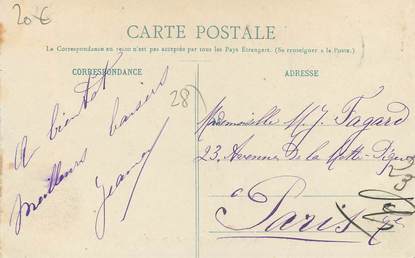 20€
CARTE POSTALE
La Correspondance au recto n'est pas acceptée par tous les Pays Étrangers. (Se renseigner à la Poste.)
CORRESPONDANCE
ADRESSE
A bientôt
meilleurs baisers
Jeanne
28
Mademoiselle M. J. Fagard
23, Avenue de la Motte-Picquet
à
Paris